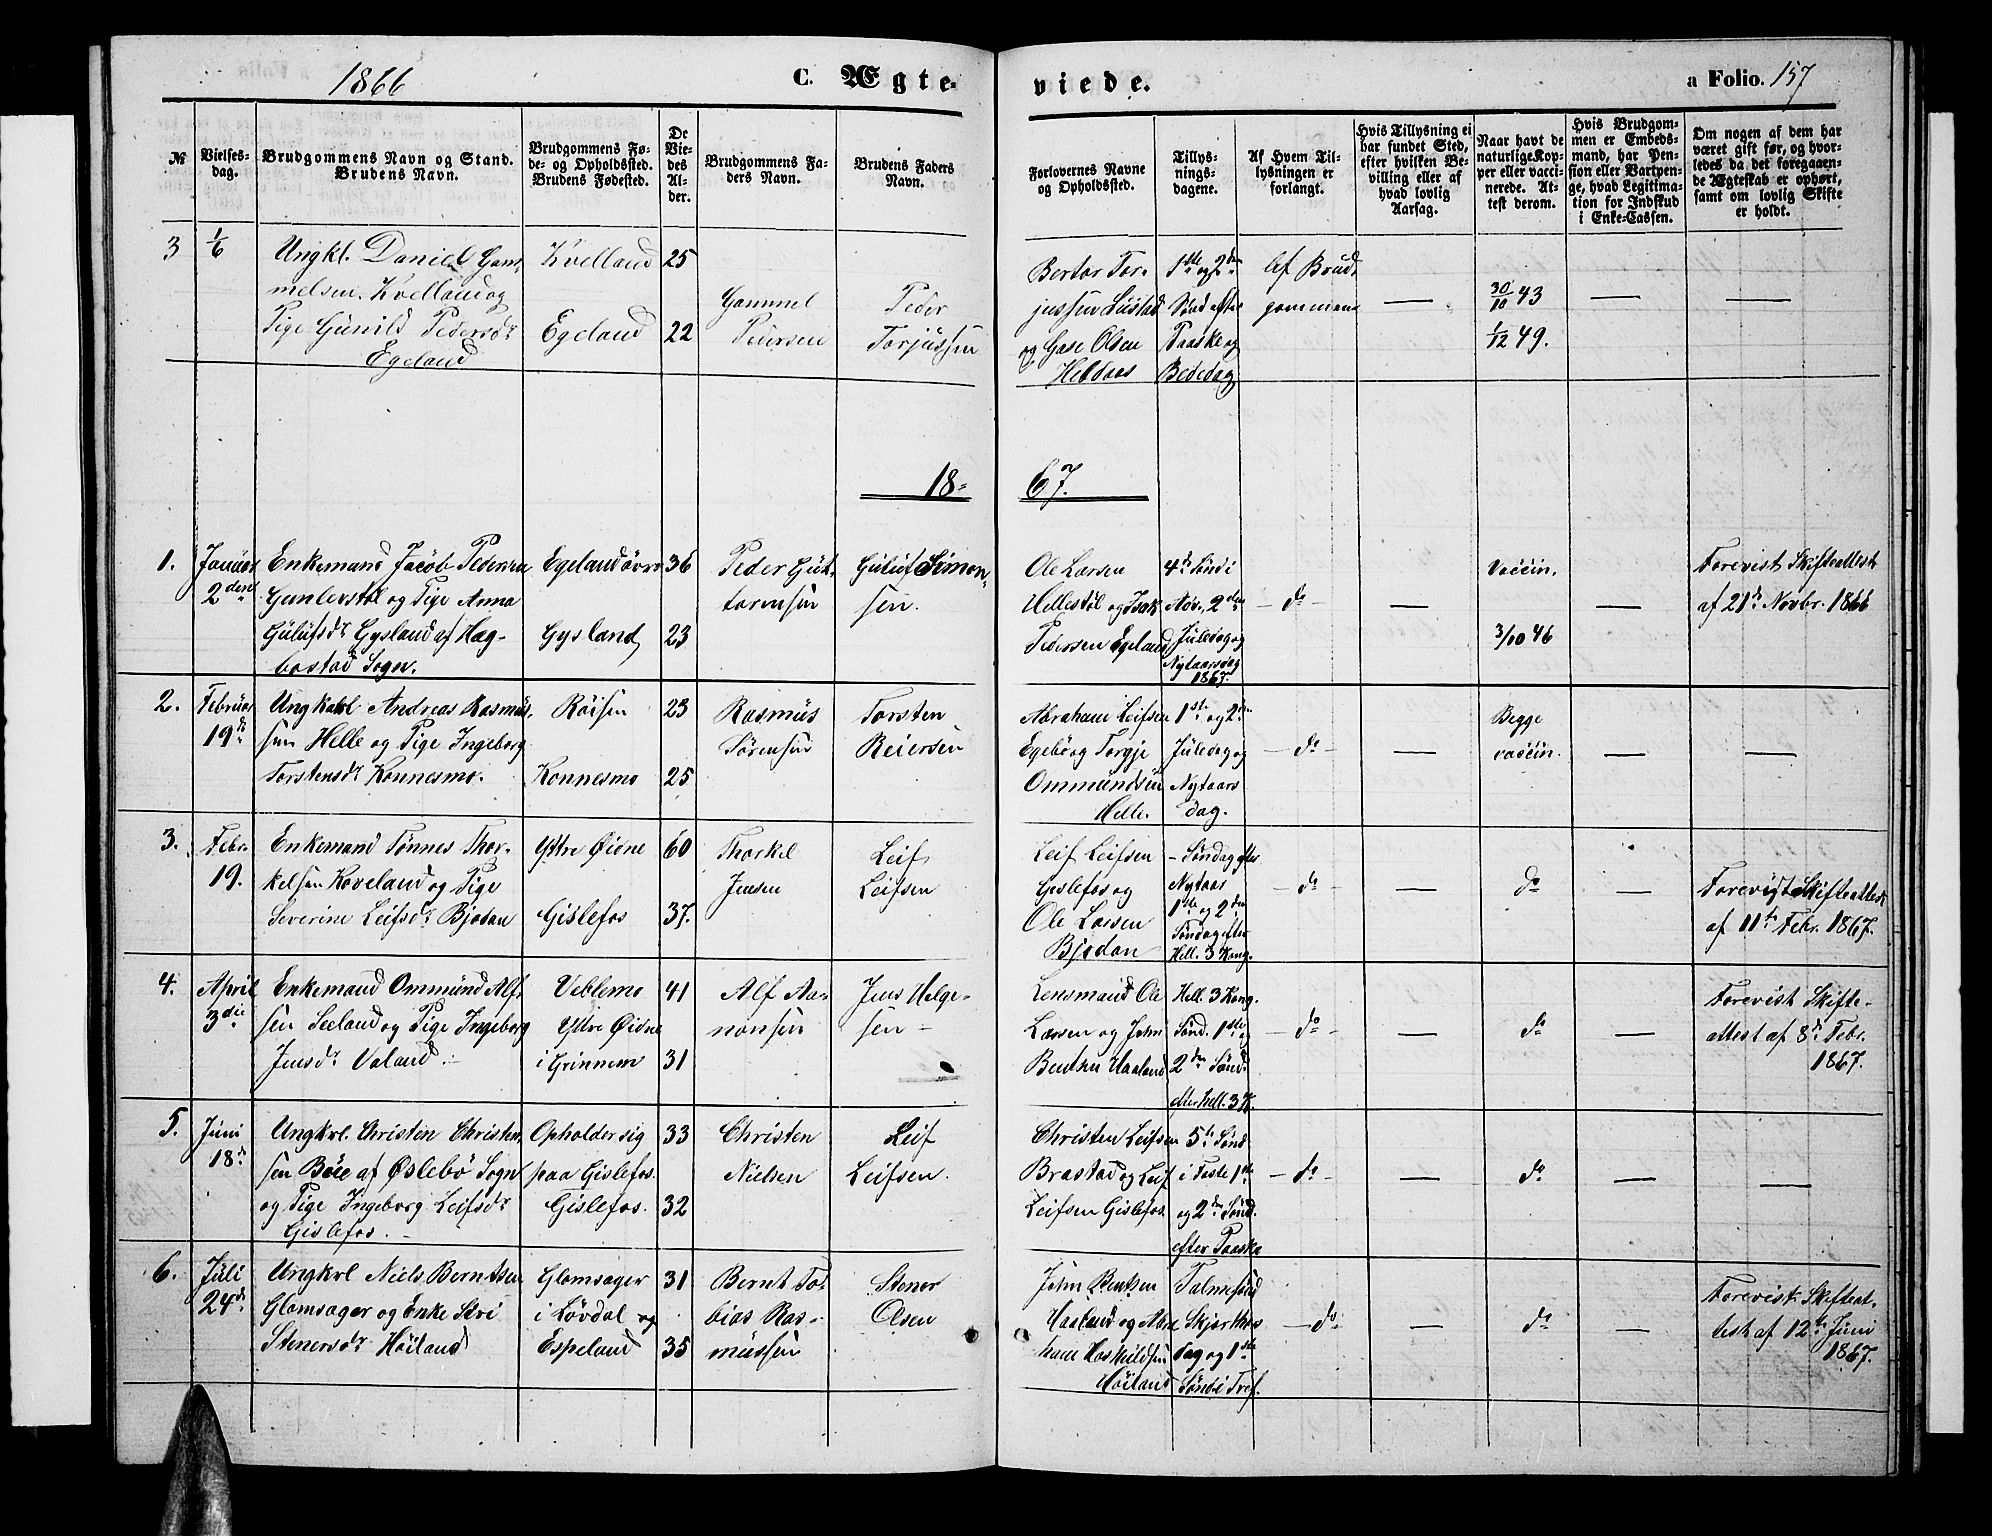 1866
C. Ægte-
viede.
a Folio. 157
№
Vielses-
dag.
Brudgommens Navn og Stand.
Brudens Navn.
Brudgommens Fø-
de- og Opholdssted.
Brudens Fødested.
De
Vie-
des
Al-
der.
Brudgommens Fa-
ders Navn.
Brudens Faders
Navn.
Forlovernes Navne
og Opholdssted.
Tillys-
nings-
dagene.
Af Hvem Til-
lysningen er
forlangt.
Hvis Tillysning ei
har fundet Sted,
efter hvilken Be-
villing eller af
hvad lovlig
Aarsag.
Naar havt de
naturlige Kop-
per eller vacci-
nerede. At-
test derom.
Hvis Brudgom-
men er Embeds-
mand, har Pen-
sion eller Vartpen-
ge, hvad Legitima-
tion for Indskud
i Enke-Cassen.
Om nogen af dem har
været gift før, og hvor-
ledes da det foregaaen-
de Ægteskab er ophørt,
samt om lovlig Skifte
er holdt.
3
1/6
Ungkl. Daniel Gam-
melsen Kvelland og
Pige Gunild Pedersdr
Egeland
Kvelland
Egeland
25
22
Gammel
Pedersen
Peder
Torjussen
Bertor Tor-
jussen Lüstad
og Gase Olsen
Heddaas
1ste og 2den
Sønd. efter
Paaske og
Bededag
Af Brud-
gommen
—
30/10 43
1/12 49.
—
—
18-
67.
1.
Januar
2den
Enkemand Jacob Pedersen
Gunlerstøl og Pige Anna
Gulufsdr Gysland af Hæg-
bostad Sogn.
Egeland övre
Gysland
36
23
Peder Gut-
tormsen
Guluf Simon-
sen.
Ole Larsen
Hellestøl og Isak
Pedersen Egeland
4de Sönd i
Adv., 2den
Juledag og
Nytaarsdag
1867.
— do
—
Vaccin.
3/10 46
—
Forevist Skifteattest
af 21de Novbr. 1866
2.
Februar
19de
Ungkarl Andreas Rasmus-
sen Helle og Pige Ingeborg
Torstensdr Konnesmo.
Röisen
Konnesmo
23
25
Rasmus
Sørensen
Torsten
Reiersen
Abraham Leifsen
Egebö og Torgje
Ommundsen
Helle.
1ste og 2den
Juledag og
Nytaars
dag.
— do —
—
Begge
vaccin.
—
—
3.
Febr.
19.
Enkemand Tønnes Thor-
kelsen Koveland og Pige
Severine Leifsdr Bjodan
Ydtre Øidne
Gislefos
60
37.
Thorkel
Jensen
Leif
Leifsen
Leif Leifsen
Gislefos og
Ole Larsen
Bjodan
- Søndag efter
Nytaar
1ste og 2den
Søndag efter
Hell. 3 Kong.
— do —
—
do
—
Forevist Skifteattest
af 11te Febr. 1867.
4.
April
3die
Enkemand Ommund Alf-
sen Seeland og Pige Ingeborg
Jensdr Valand.
Veblemo
Ydtre Øidne
i Grinnem
41
31
Alf Aa-
nonsen
Jens Helge-
sen -
Lensmand Ole
Larsen og John
Bentsen Haaland
Hell. 3 Kong.
Sønd. 1ste og
2den Sønd.
efter hell. 3 K.
— do —
—
do
—
Forevist Skifte-
attest af 8de Febr.
1867.
5.
Juni
18de
Ungkrl. Christen Christen-
sen Böie af Øslebö Sogn
og Pige Ingeborg Leifsdr
Gislefos. -
Opholder sig
paa Gislefos.
Gislefos.
33
32
Christen
Nielsen
Leif
Leifsen.
Christen Leifsen
Brastad og Leif
Leifsen Gislefos
5te Sønd
i Faste 1ste
og 2den Sønd.
efter Paaske
— do —
—
do
—
—
6.
Juli
24de
Ungkrl Niels Berntsen
Glomsager og Enke Siri
Stenersdr Höiland
Glomsager
i Lövdal og
Espeland
31
35
Bernt To-
bias Ras-
mussen
Stener
Olsen
John Bentsen
Haaland og Abra
ham Haskildsen
Höiland
Palmesönd
Skjærthors
dag og 1ste
Sønd i Tref.
— do —
—
do
—
Forevist Skifteat-
test af 12te Juni
1867.